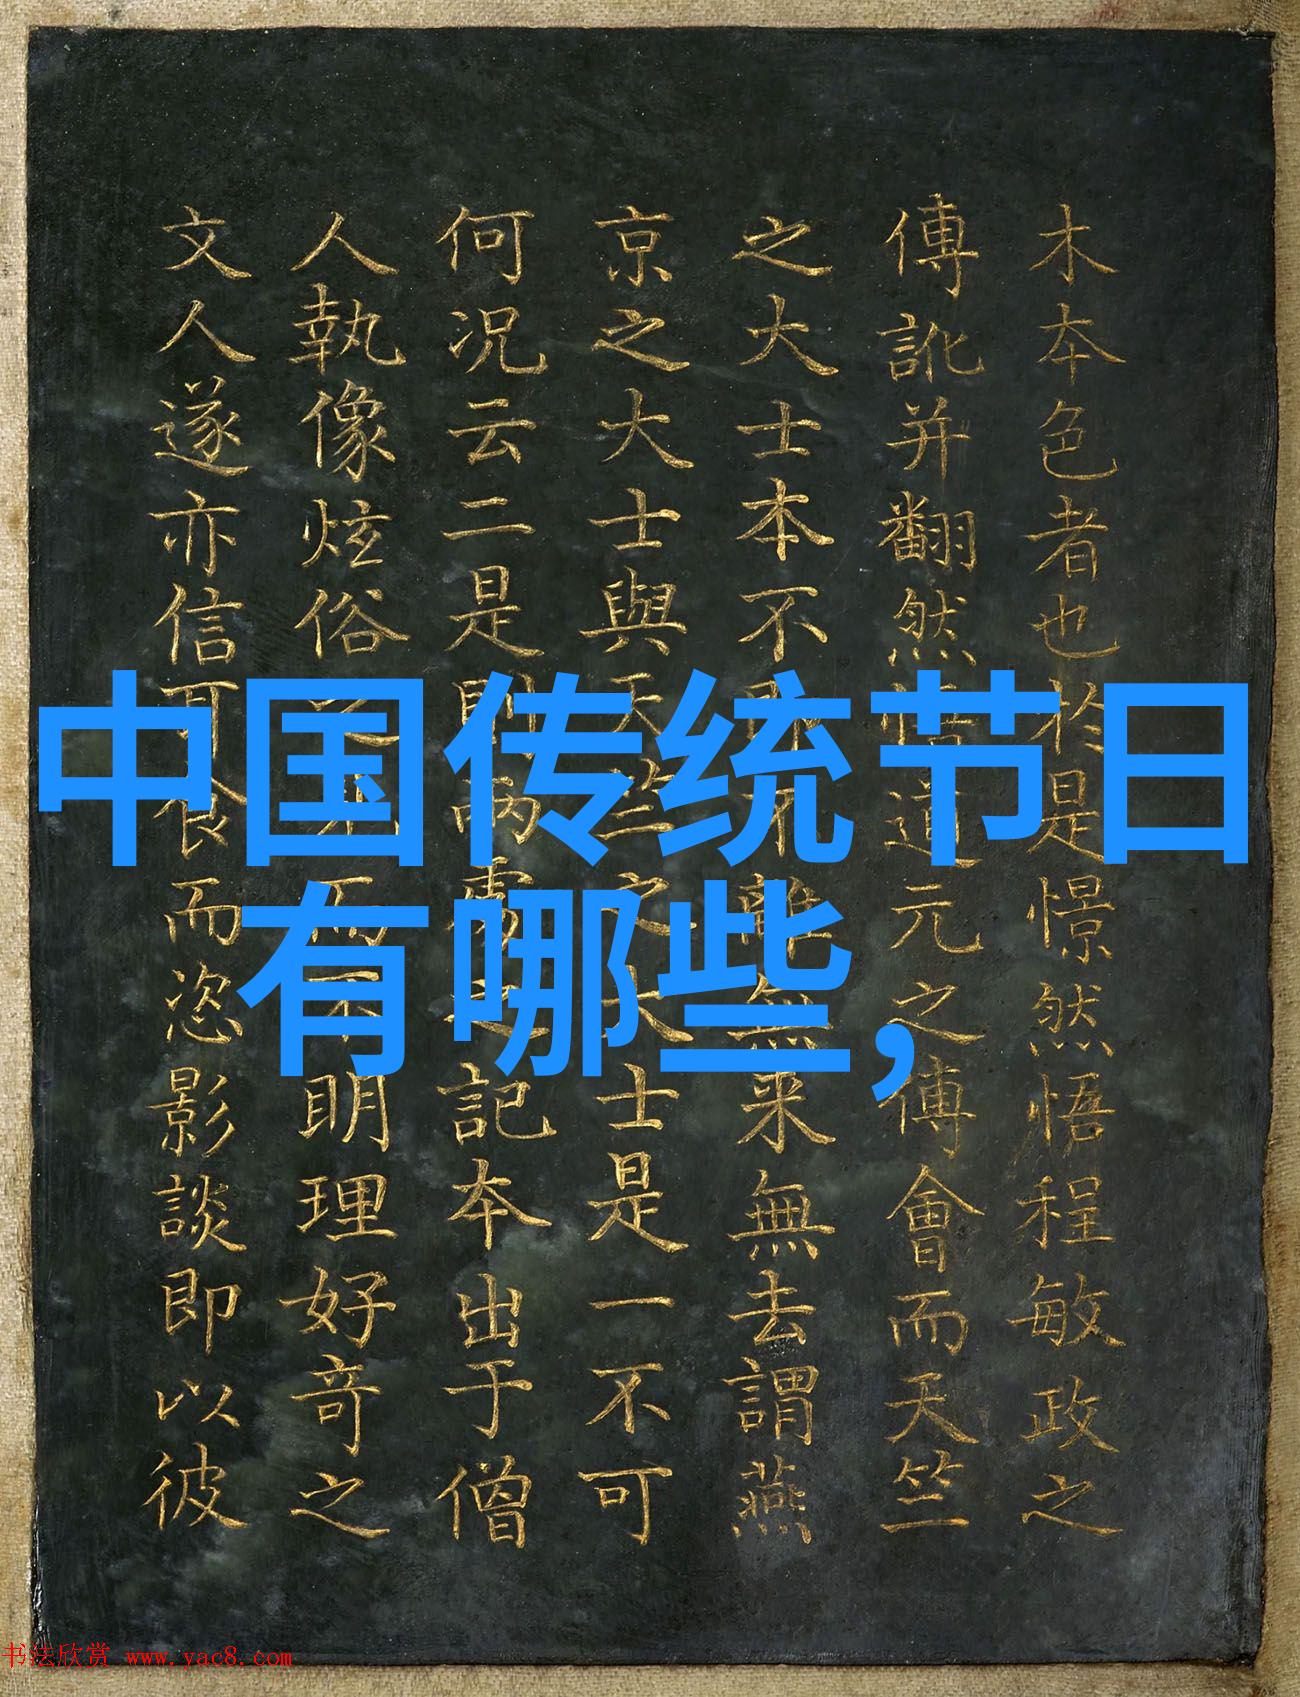 中国传统节日
有哪些,
木本色者也於是憬然悟程敏政之
傳訛并翻然悟道元之傅會而天竺
之大士本不即不離無来無去謂燕
京之大士與天竺之大士是一不可
何況云二是則兩處之記本出于僧
人執像炫俗而不明理好奇之
文人遂亦信耳食而恣影談即以彼
书法欣赏 www.yac8.com